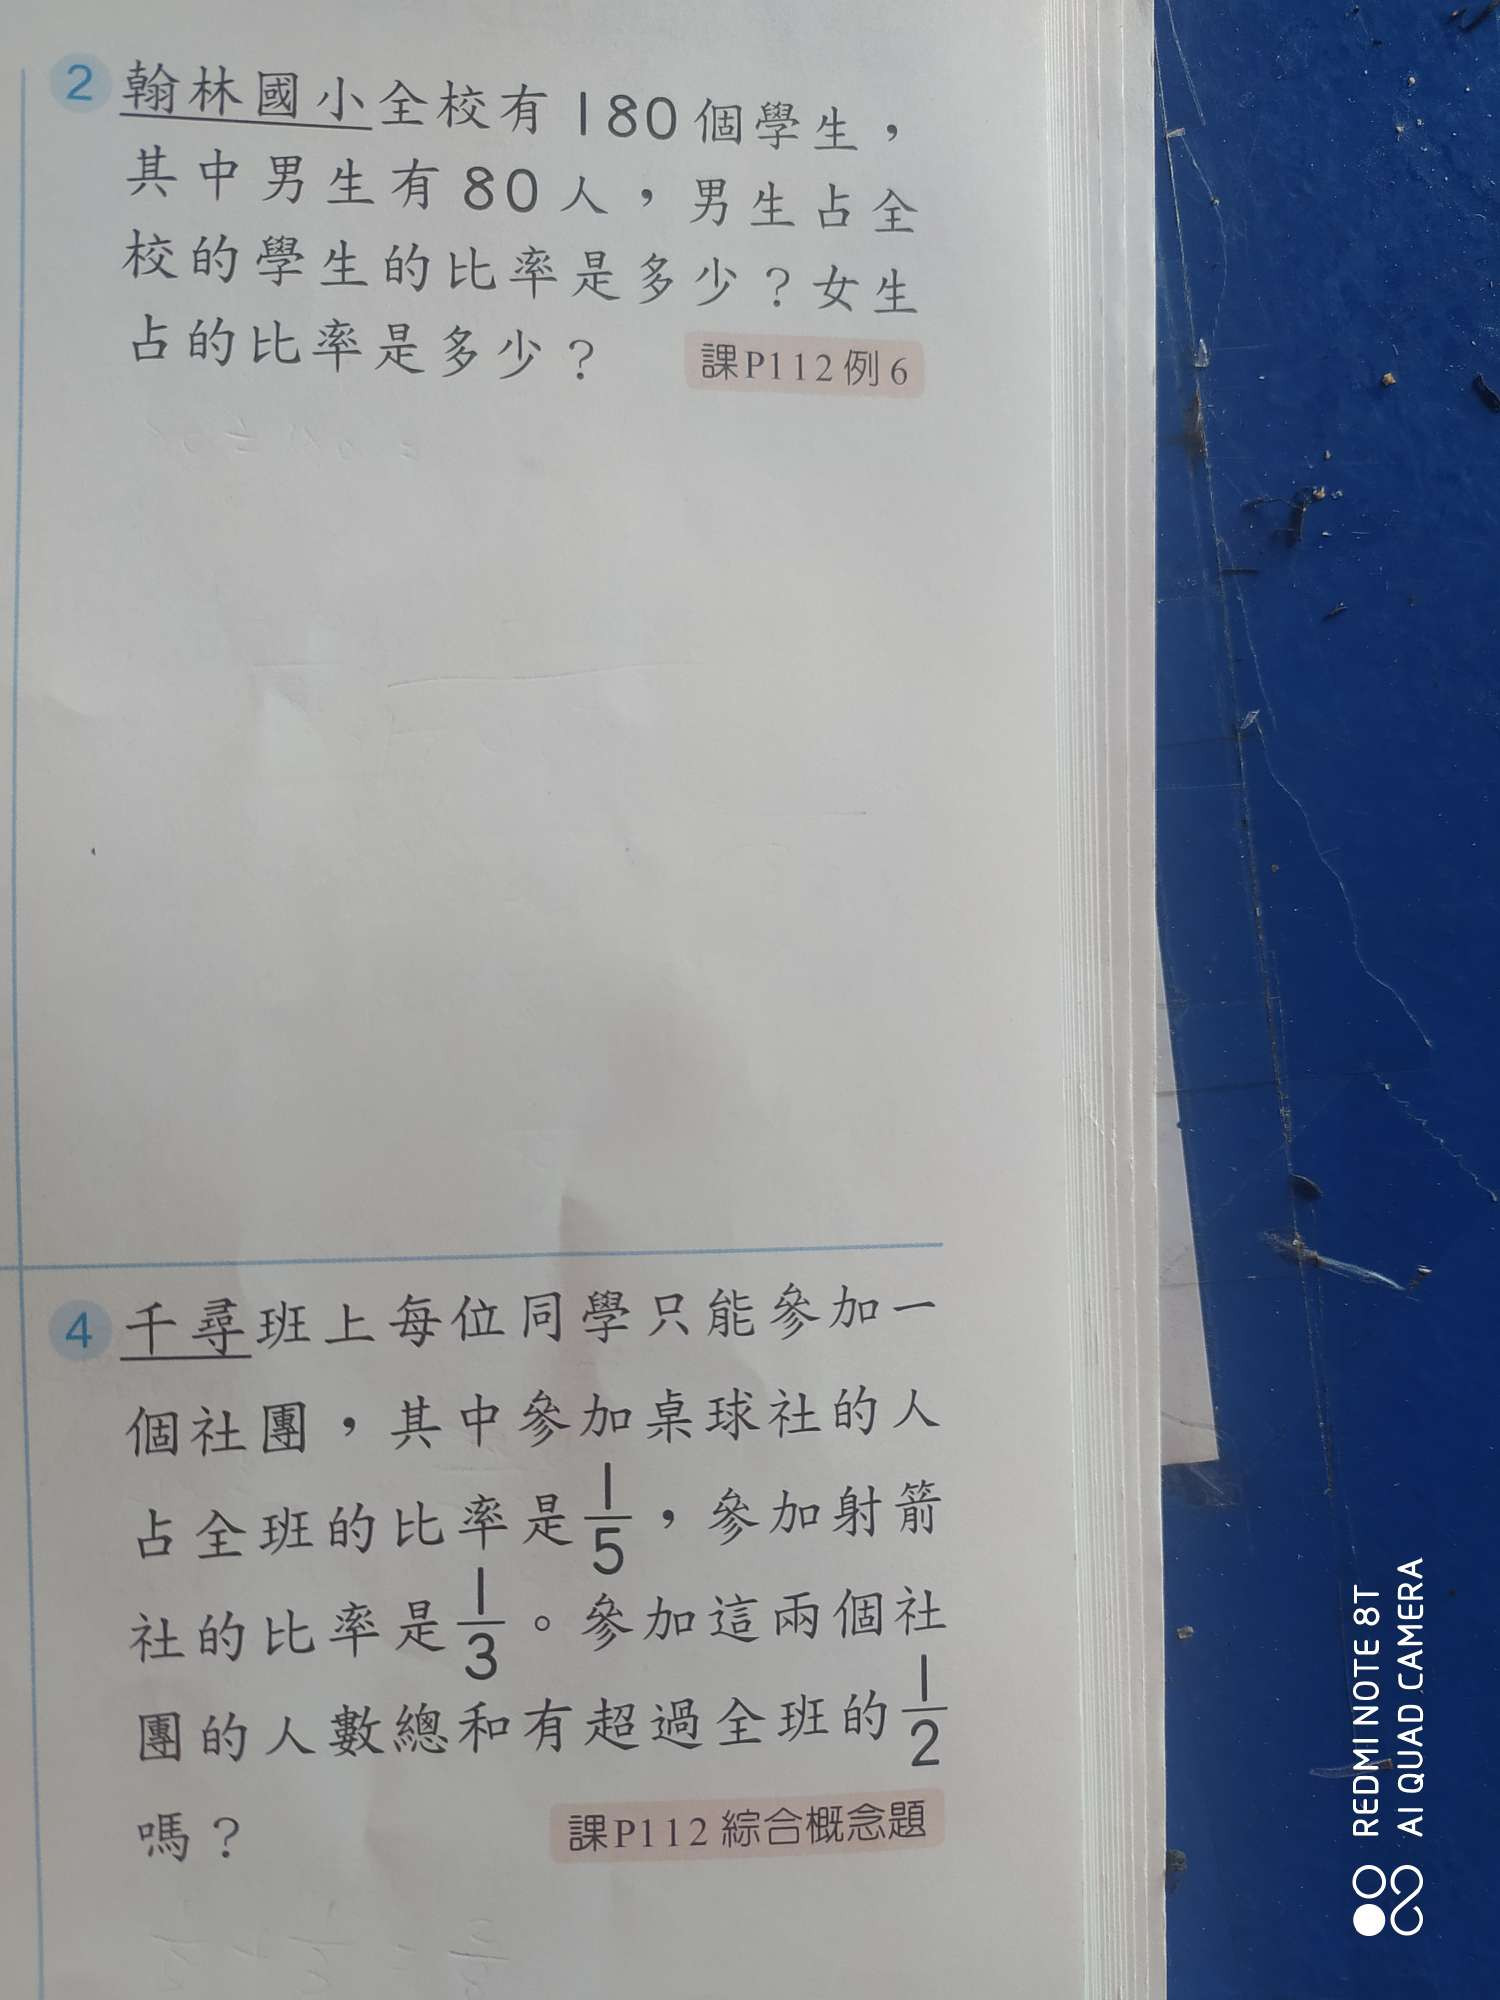 2 翰林國小全校有180個學生，
其中男生有80人，男生占全
校的學生的比率是多少？女生
占的比率是多少？ 課P112例6
4 千尋班上每位同學只能參加一
個社團，其中參加桌球社的人
占全班的比率是1/5，參加射箭
社的比率是1/3。參加這兩個社
團的人數總和有超過全班的1/2
嗎？ 課P112綜合概念題
REDMI NOTE 8T
AI QUAD CAMERA